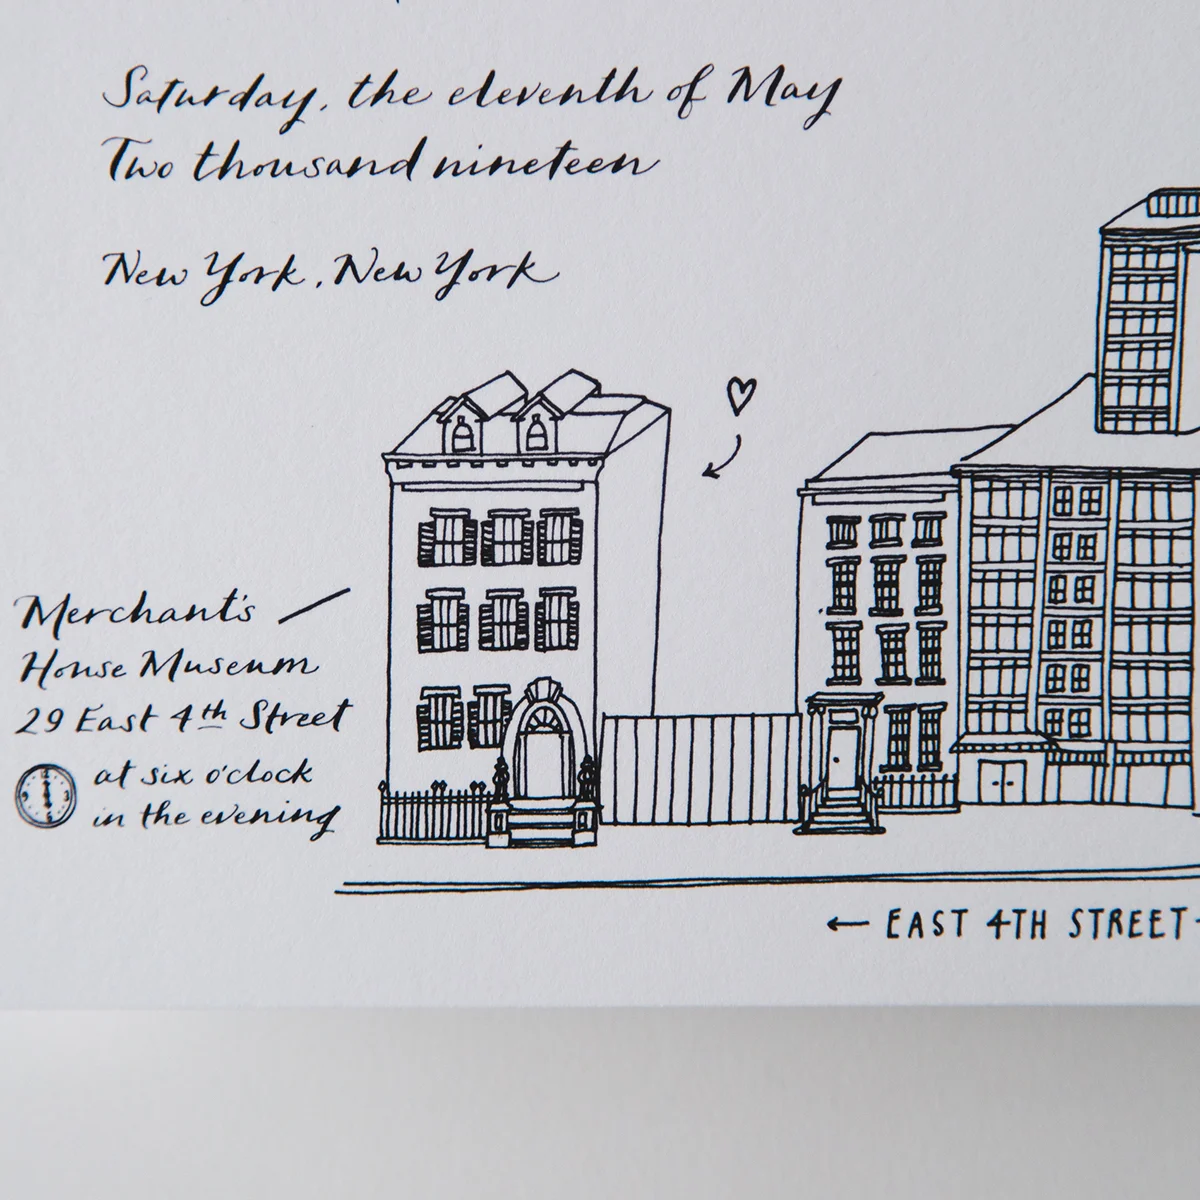 Saturday, the eleventh of May
Two thousand nineteen
New York, New York
Merchant's
House Museum
29 East 4th Street
at six o'clock
in the evening
← EAST 4TH STREET